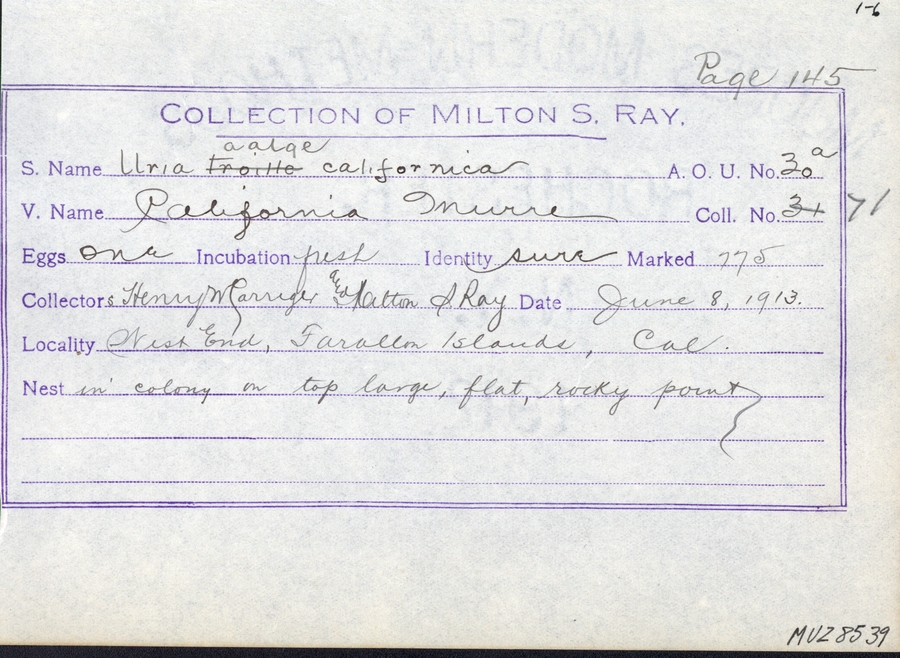 1-6
Page 145
COLLECTION OF MILTON S. RAY.
aalge
S. Name Uria troille californica A. O. U. No. 30a
V. Name California Murre Coll. No. 31 71
Eggs one Incubation fresh Identity sure Marked 775
Collectors Henry W Carriger and Milton S Ray Date June 8, 1913.
Locality West End, Farallon Islands, Cal.
Nest in colony on top large, flat, rocky point
MVZ 8539